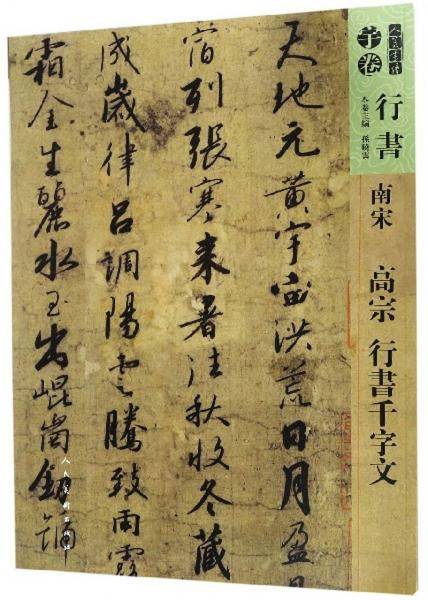 人美書譜
宇卷
行書
本卷主編 孫曉雲
南宋 高宗 行書千字文
天地元黄宇宙洪荒日月盈
宿列張寒来暑往秋收冬藏
成歲律呂調陽雲騰致雨露
霜金生麗水玉出崐崗釼
人民美術出版社